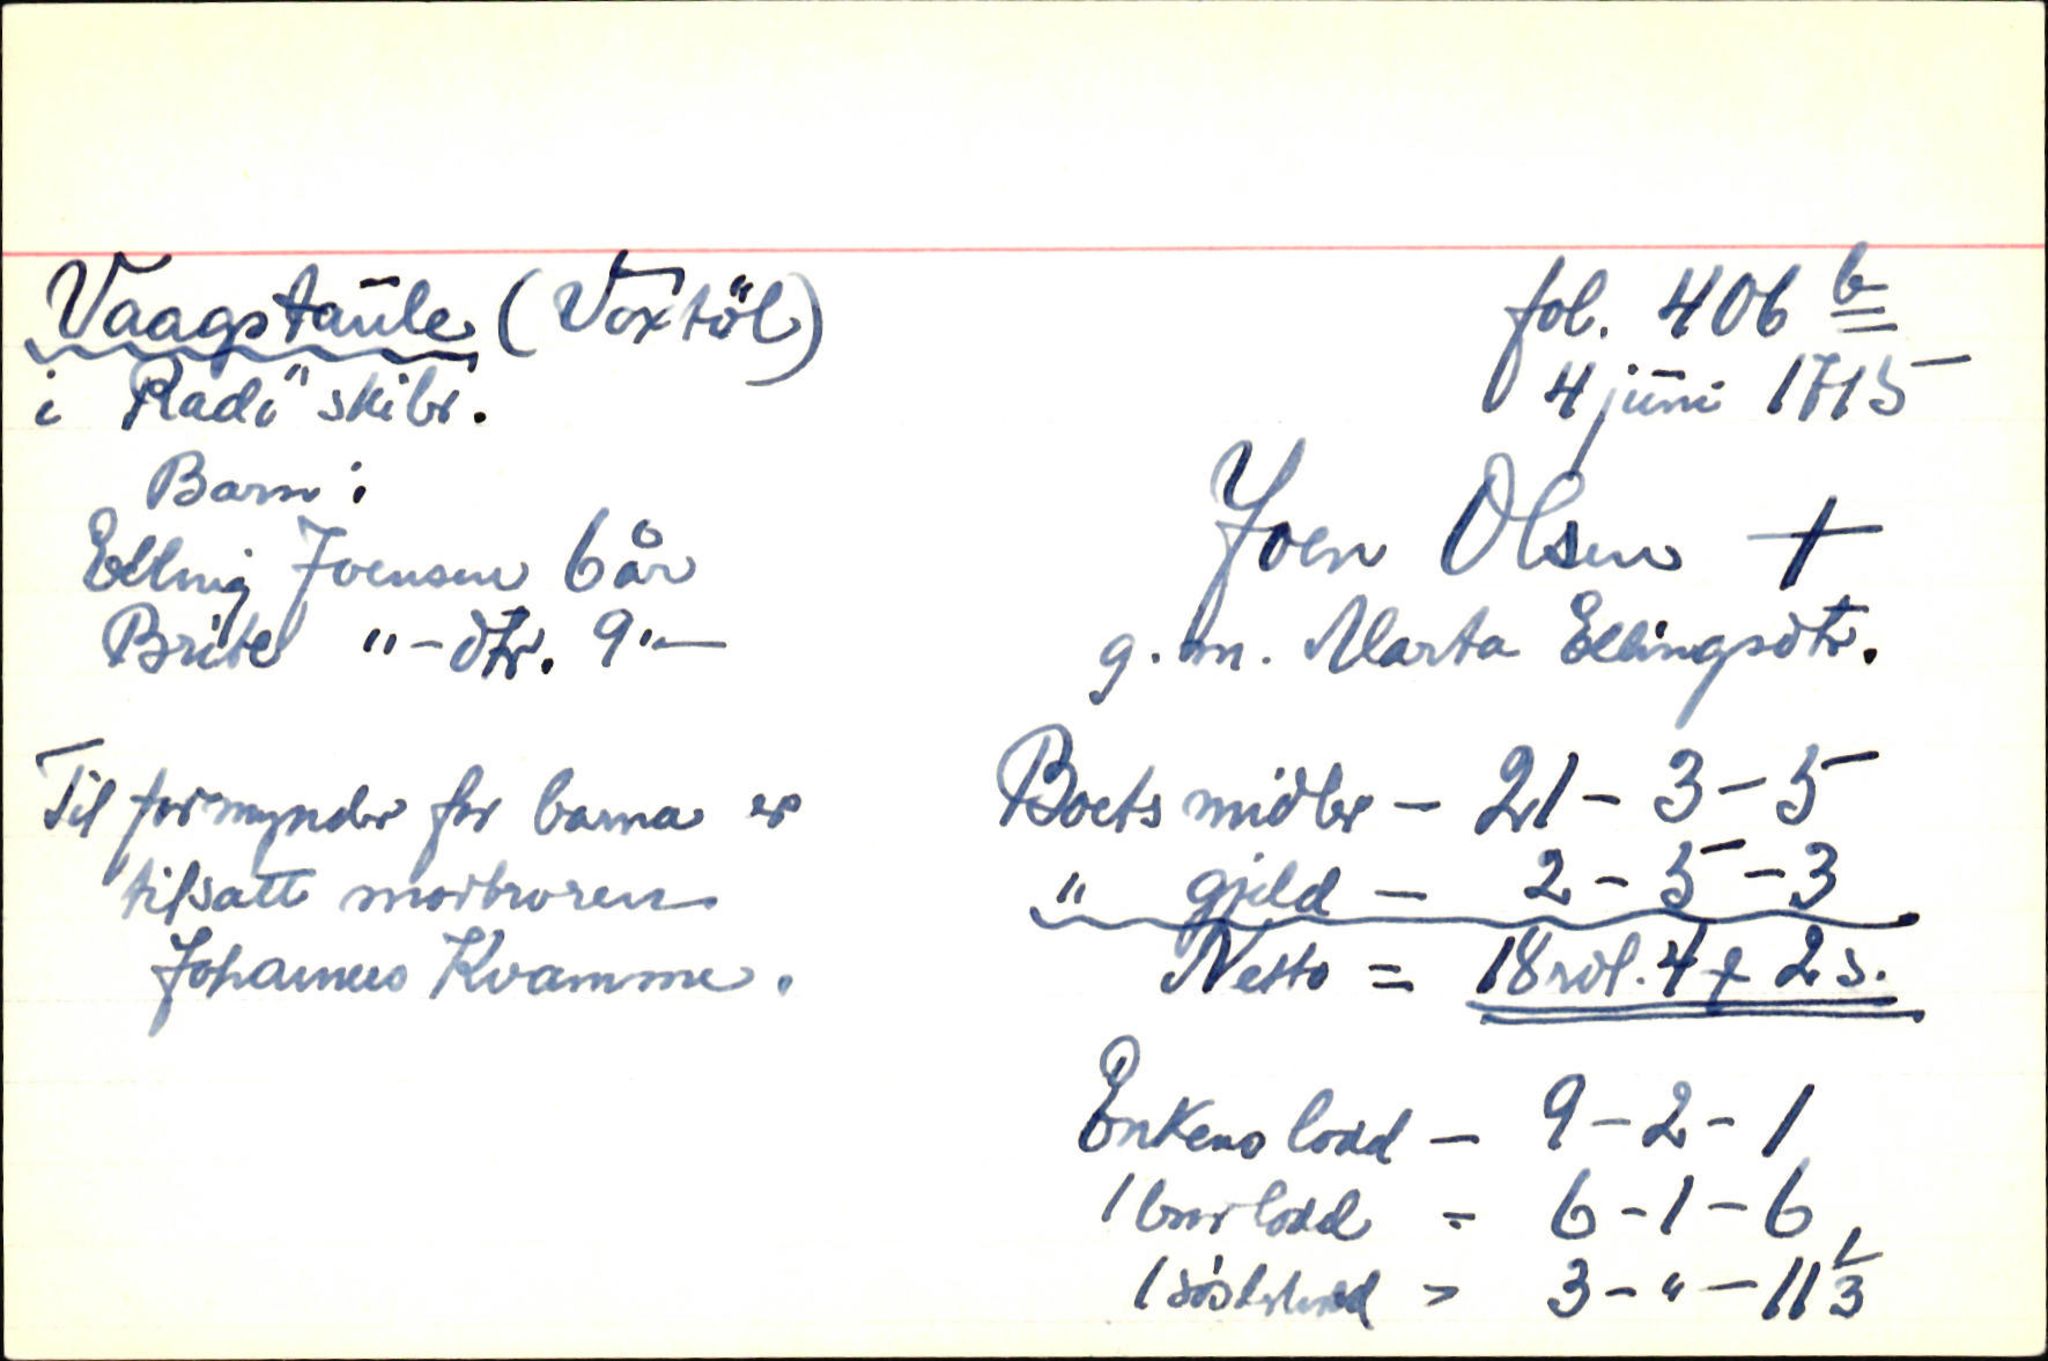 Vaagstaule (Voxtöl)
i Radö skibr.
fol. 406 b
4 juni 1715
Barn:
Elling Joensen 6 år
Brite " - dtr. 9 "—
Til formynder for barna er
tilsatt morbroren
Johannes Kvamme.
Joen Olsen +
g.m. Marta Ellingsdtr.
Boets midler - 21 - 3 - 5
" gjeld - 2 - 5 - 3
Netto = 18 rdl. 4 ƒ 2 s.
Enkens lodd - 9 - 2 - 1
1 brorlodd = 6 - 1 - 6
1 søsterlodd = 3 - " - 11 1/3